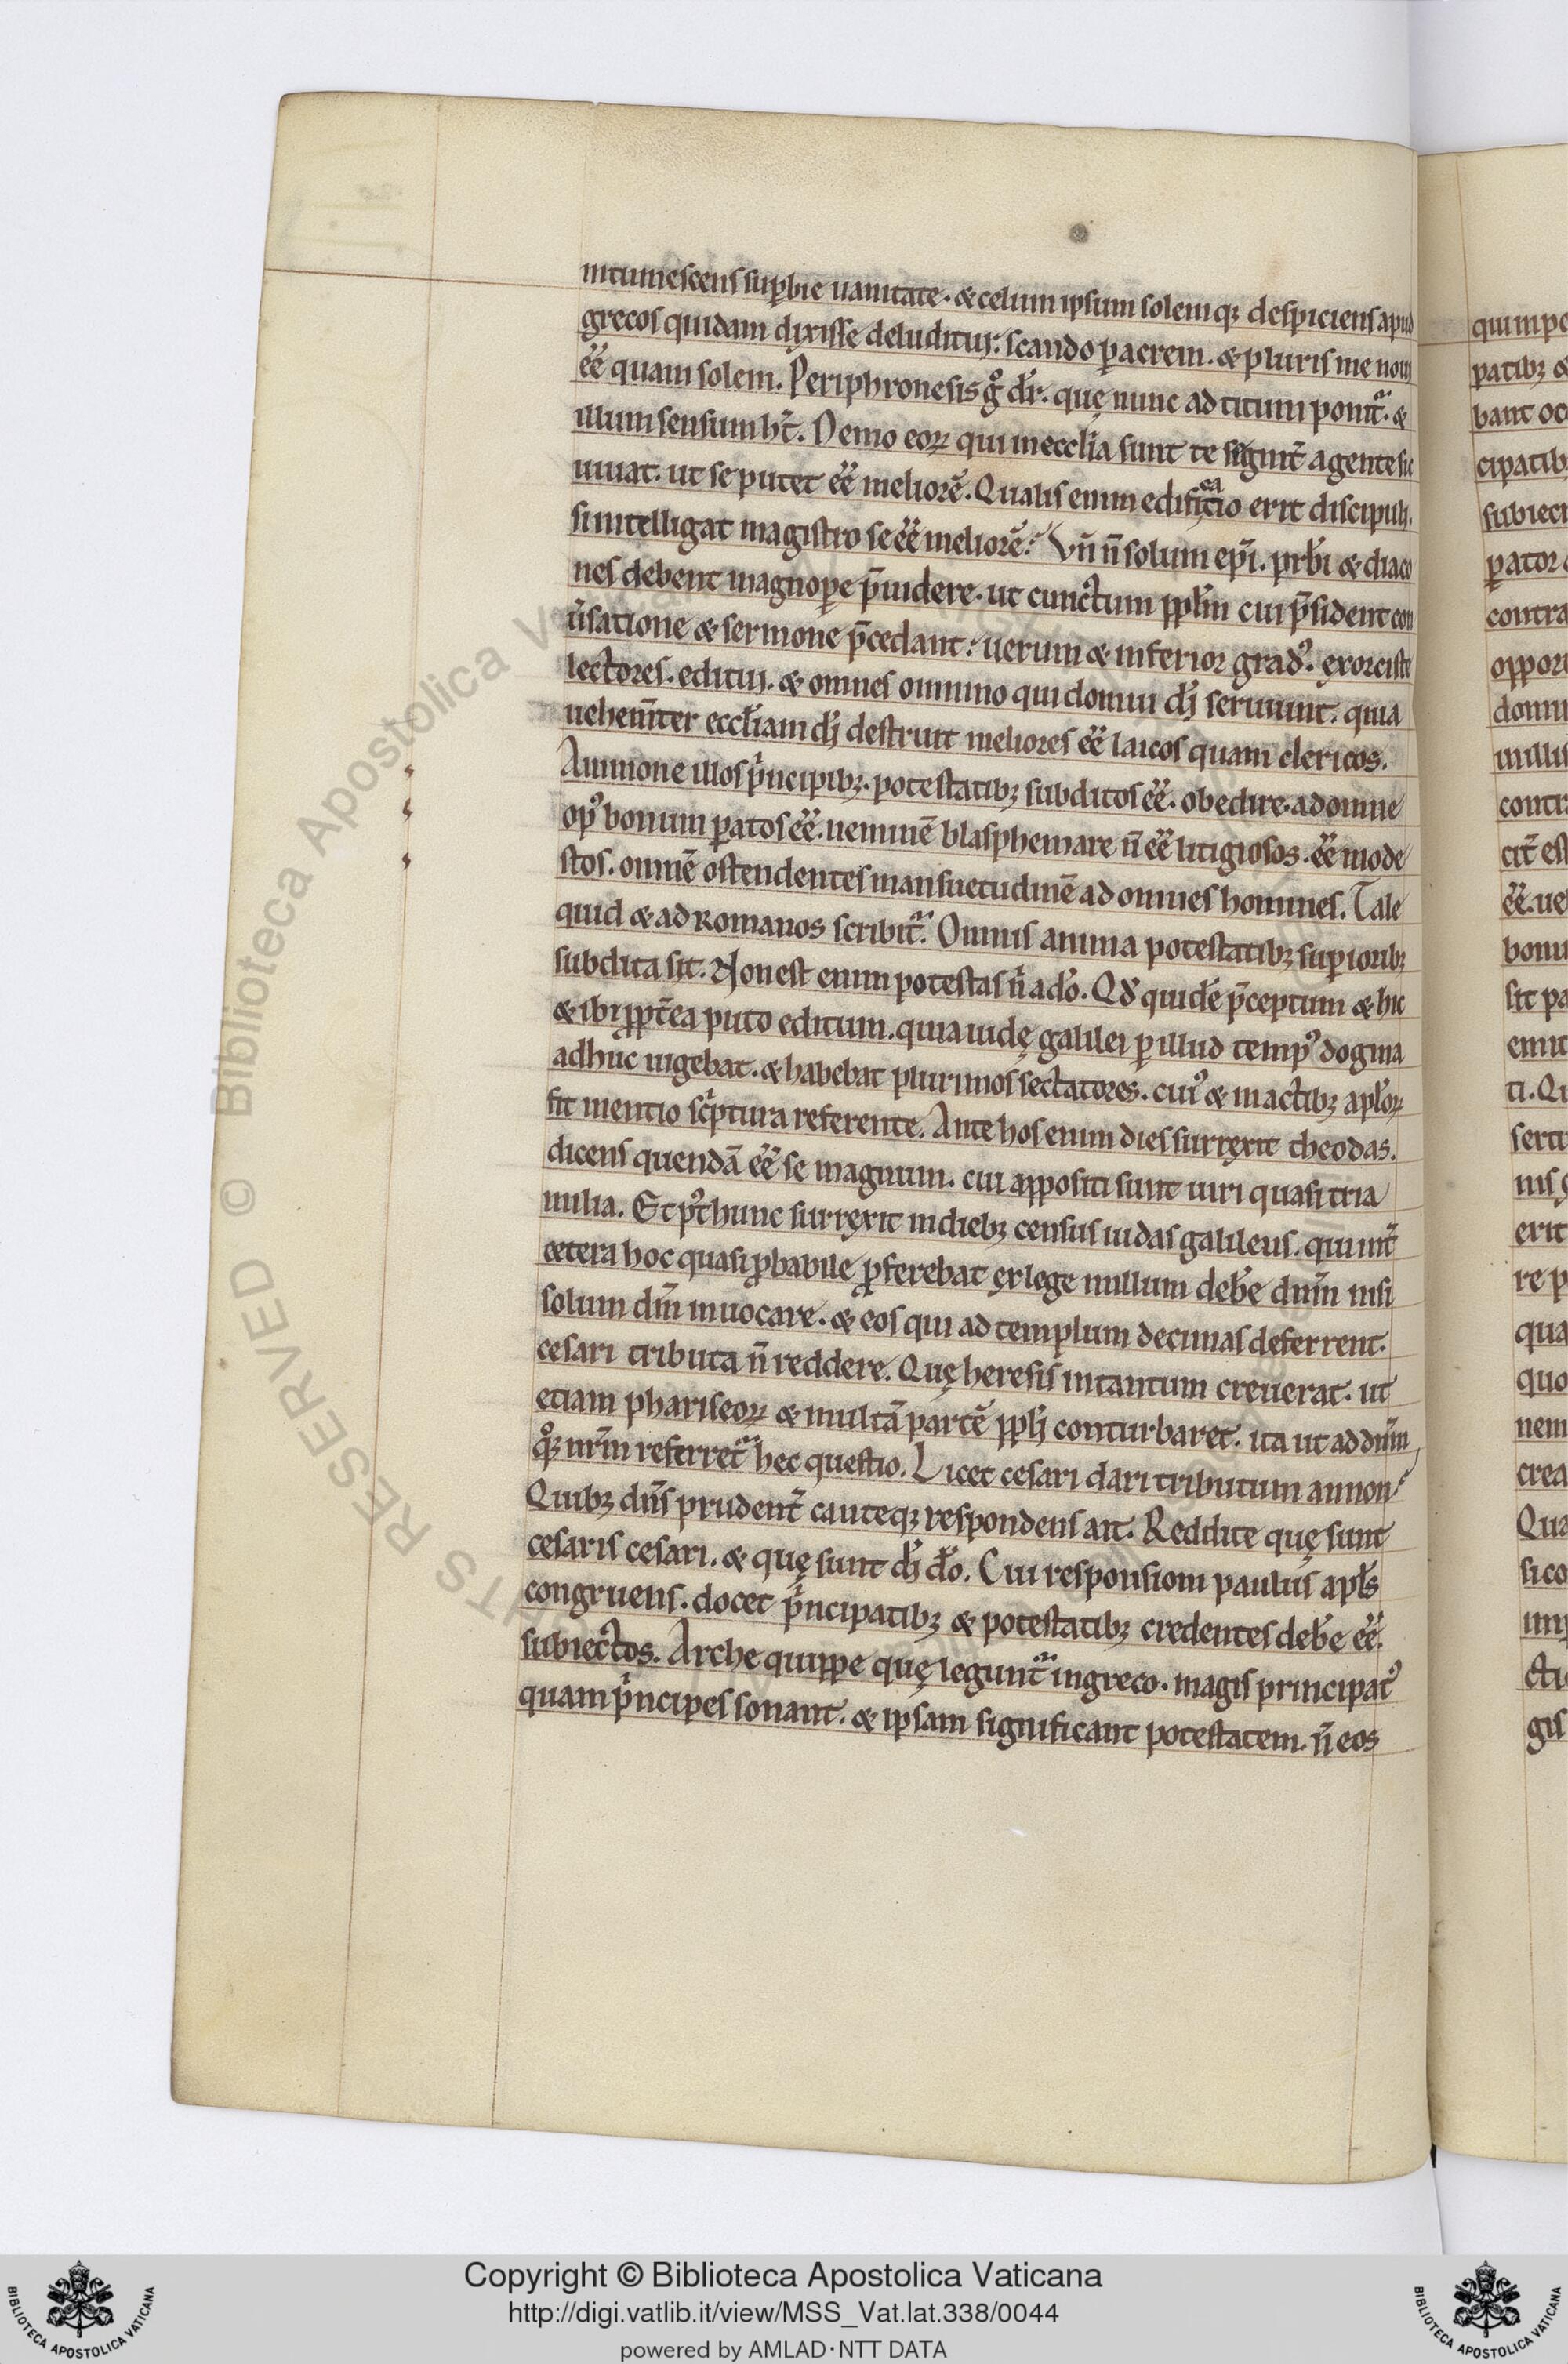 intumescens sup̱bie uanitate. & celum ipsum solemq; despiciens apud
grecos quidam dixisse deluditur: scando ꝑ aerem. & pluris me noui
ee̅ quam solem. Periphronesis gͦ dr̅. quę nunc ad titum ponitᷓ. &
illum sensum ht̅. Nemo eoꝝ qui in eccl̅ia sunt te segnit̅ agente sic
uiuat. ut se putet ee̅ meliore̅. Qualis enim edificatio erit discipuli.
si intelligat magistro se ee̅ meliore̅? Vn̅ n̅ solum ep̅i. prb̅i & diaco
nes debent magnoꝑe p̅uidere. ut cunctum ppl̅m cui p̅sident con
u̅satione & sermone p̅cedant: uerum & inferior gradꝰ. exorciste
lectores. editui. & omnes omnino qui domui di̅ seruiunt. quia
uehem̅ter eccl̅iam di̅ destruit meliores ee̅ laicos quam clericos.
Ammone illos pͥncipibꝫ. potestatibꝫ subditos ee̅. obedire. ad omne
opꝰ bonum ꝑatos ee̅. nemine̅ blasphemare n̅ ee̅ litigiosos. ee̅ mode
stos. omne̅ ostendentes mansuetudine̅ ad omnes homines. Tale
quid & ad Romanos scribitᷓ. Omnis anima potestatibꝫ suꝑioribꝫ
subdita sit. Non est enim potestas nͥ a do̅. Qd̅ quide̅ p̅ceptum & hic
& ibi ꝓpt̅ea puto editum. quia iudę galilei ꝑ illud tempꝰ dogma
adhuc uigebat. & habebat plurimos sectatores. cuiꝰ & in actibꝫ apl̅oꝝ
fit mentio scͥptura referente. Ante hos enim dies surrexit theodas.
dicens quenda̅ ee̅ se magnum. cui appositi sunt uiri quasi tria
milia. Et pꝰt hunc surrexit in diebꝫ census iudas galileus. qui int̅
cetera hoc quasi ꝓbabile ꝓferebat ex lege nullum debe̅ dn̅m nisi
solum dm̅ inuocare. & eos qui ad templum decimas deferrent.
cesari tributa n̅ reddere. Quę heresis in tantum creuerat. ut
etiam phariseoꝝ & multa̅ parte̅ ppl̅i conturbaret. ita ut ad dn̅m
qͦꝫ nr̅m referretᷓ hec questio. Licet cesari dari tributum an non?
Quibꝫ dn̅s prudent̅ cauteqꝫ respondens ait. Reddite quę sunt
cesaris cesari. & quę sunt di̅ do̅. Cui responsioni paulus apl̅s
congruens. docet pͥncipatibꝫ & potestatibꝫ credentes debe̅ ee̅.
subiectos. Arche quippe quę leguntᷓ in greco. magis principatꝰ
quam pͥncipes sonant. & ipsam significant potestatem. n̅ eos
qui in pe
ꝑatibꝫ &
bant oc
cipatib
subiect
ꝑator
contra
oppor
domi
milli
contr
cit̅ est
ee̅. ue
bonu
sit pa
enit
ti. Qu
serit
nis
erit
re p
qua
quo
nem
crea
Qua
si co
imp
cti
gis
© Biblioteca Apostolica Vaticana
RIGHTS RESERVED
Copyright © Biblioteca Apostolica Vaticana
http://digi.vatlib.it/view/MSS_Vat.lat.338/0044
powered by AMLAD·NTT DATA
BIBLIOTECA APOSTOLICA VATICANA
BIBLIOTECA APOSTOLICA VATICANA